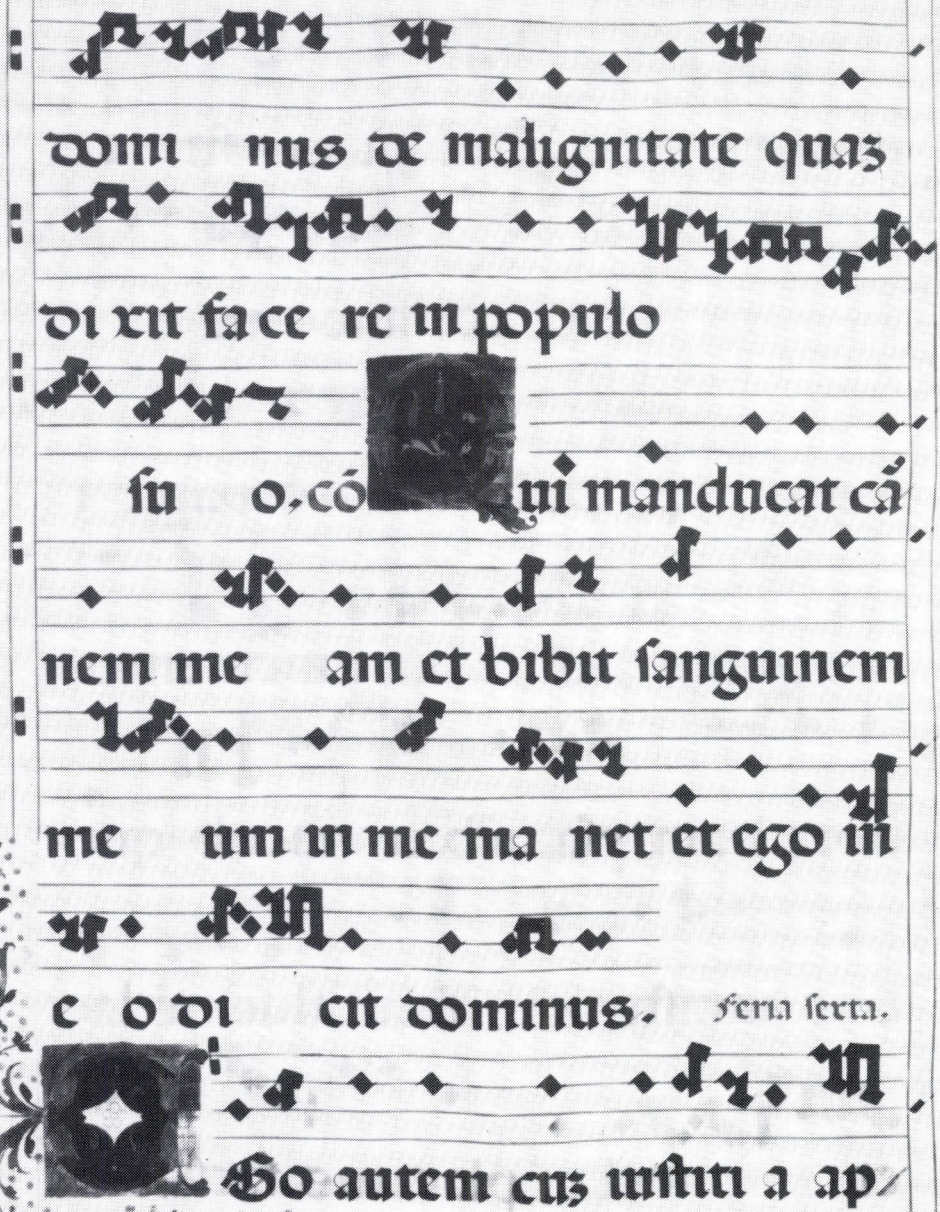 domi nus de malignitate quaʒ
di xit face re in populo
su o. co Qui manducat car
nem me am et bibit sanguinem
me um in me ma net et ego in
e o di cit dominus. Feria sexta.
Ego autem cuʒ iustiti a ap